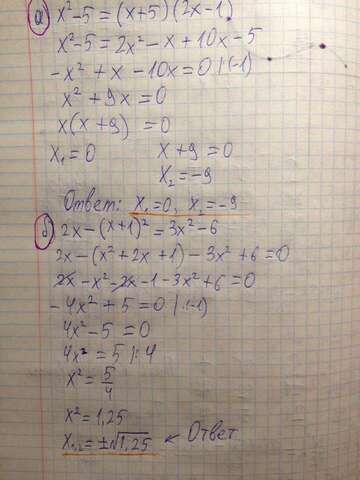 а) x²-5=(x+5)(2x-1)
x²-5=2x²-x+10x-5
-x²+x-10x=0 |·(-1)
x²+9x=0
x(x+9)=0
x₁=0 x+9=0
x₂=-9
Ответ: x₁=0, x₂=-9
б) 2x-(x+1)²=3x²-6
2x-(x²+2x+1)-3x²+6=0
2x-x²-2x-1-3x²+6=0
-4x²+5=0 |·(-1)
4x²-5=0
4x²=5 |:4
x²=5/4
x²=1,25
x₁,₂=±√1,25 ← Ответ